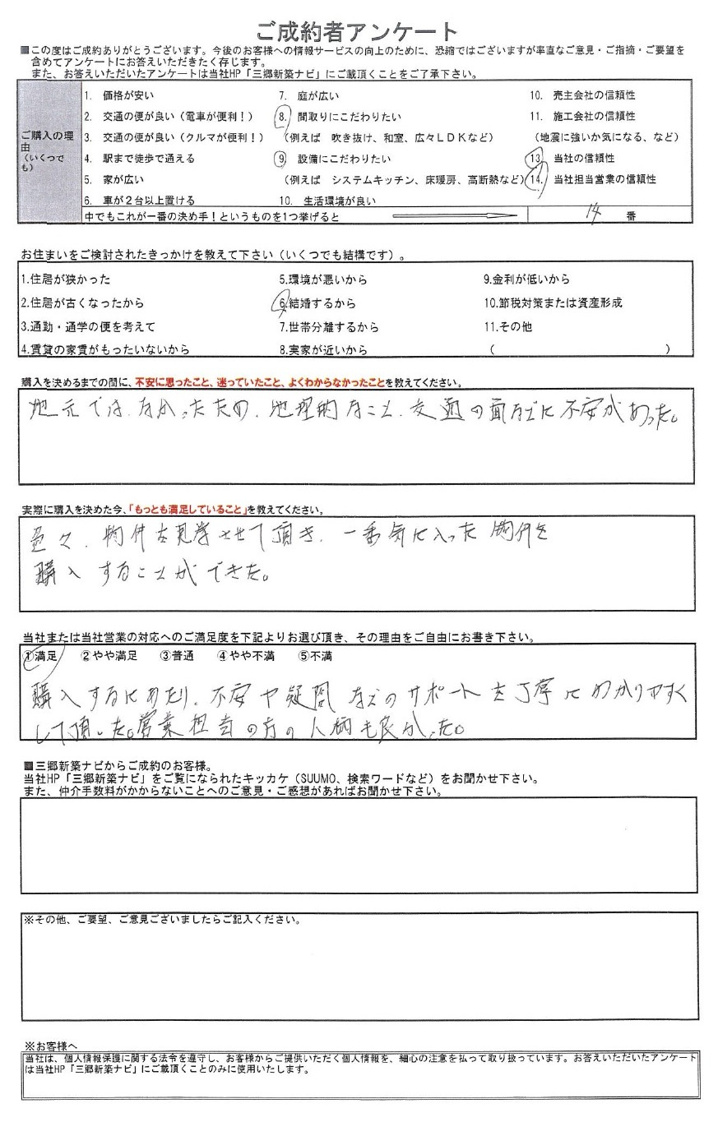 ご成約者アンケート
■この度はご成約ありがとうございます。今後のお客様への情報サービスの向上のために、恐縮ではございますが率直なご意見・ご指摘・ご要望を
含めてアンケートにお答えいただきたく存じます。
また、お答えいただいたアンケートは当社HP「三郷新築ナビ」にご載頂くことをご了承下さい。
ご購入の理由
(いくつでも)
1. 価格が安い
2. 交通の便が良い(電車が便利!)
3. 交通の便が良い(クルマが便利!)
4. 駅まで徒歩で通える
5. 家が広い
6. 車が2台以上置ける
7. 庭が広い
8. 間取りにこだわりたい
(例えば 吹き抜け、和室、広々LDKなど)
9. 設備にこだわりたい
(例えば システムキッチン、床暖房、高断熱など)
10. 生活環境が良い
10. 売主会社の信頼性
11. 施工会社の信頼性
(地震に強いか気になる、など)
13. 当社の信頼性
14. 当社担当営業の信頼性
中でもこれが一番の決め手!というものを1つ挙げると 14 番
お住まいをご検討されたきっかけを教えて下さい(いくつでも結構です)。
1.住居が狭かった
2.住居が古くなったから
3.通勤・通学の便を考えて
4.賃貸の家賃がもったいないから
5.環境が悪いから
6.結婚するから
7.世帯分離するから
8.実家が近いから
9.金利が低いから
10.節税対策または資産形成
11.その他
( )
購入を決めるまでの間に、不安に思ったこと、迷っていたこと、よくわからなかったことを教えてください。
地元ではなかったため、地理的なこと、交通の面などに不安があった。
実際に購入を決めた今、「もっとも満足していること」を教えてください。
色々、物件を見学させて頂き、一番気に入った物件を
購入することができた。
当社または当社営業の対応へのご満足度を下記よりお選び頂き、その理由をご自由にお書き下さい。
①満足 ②やや満足 ③普通 ④やや不満 ⑤不満
購入するにあたり、不安や疑問などのサポートを丁寧にわかりやすく
して頂いた。営業担当の方の人柄も良かった。
■三郷新築ナビからご成約のお客様。
当社HP「三郷新築ナビ」をご覧になられたキッカケ(SUUMO、検索ワードなど)をお聞かせ下さい。
また、仲介手数料がかからないことへのご意見・ご感想があればお聞かせ下さい。
※その他、ご要望、ご意見ございましたらご記入ください。
※お客様へ
当社は、個人情報保護に関する法令を遵守し、お客様からご提供いただく個人情報を、細心の注意を払って取り扱っています。お答えいただいたアンケート
は当社HP「三郷新築ナビ」にご載頂くことのみに使用いたします。